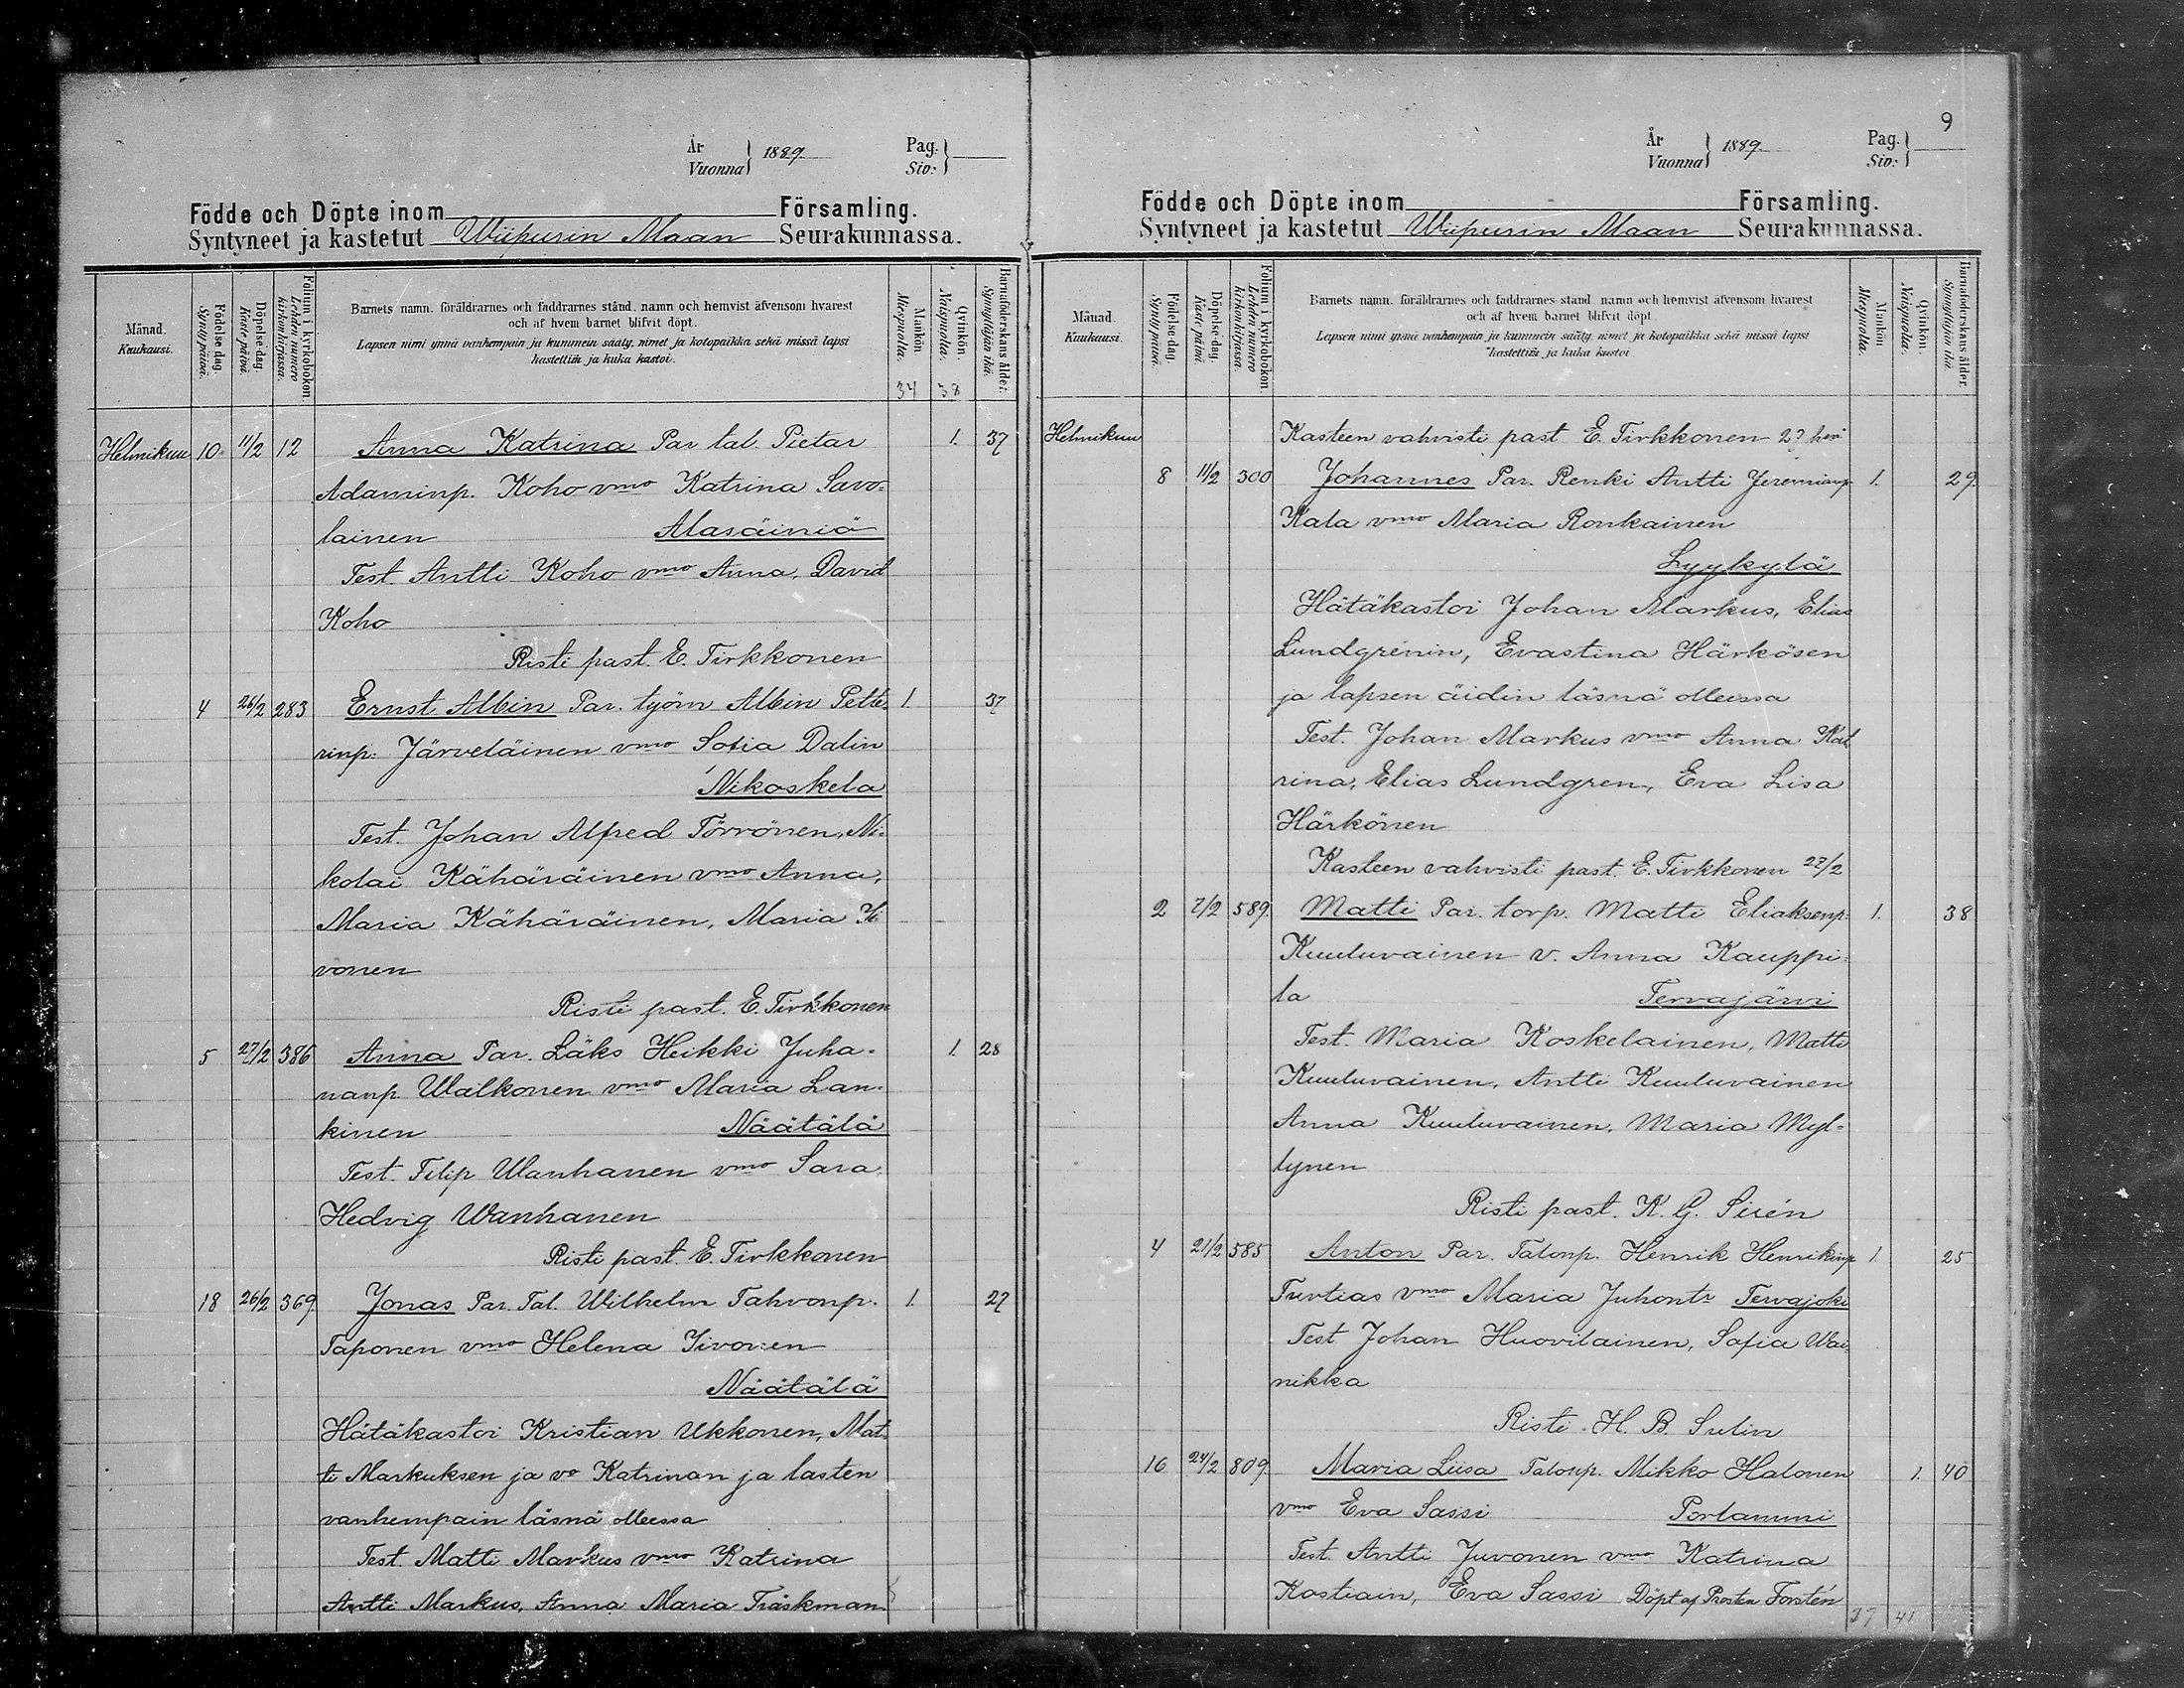 År
Vuonna } 1889.
Pag.
Siv: }
Födde och Döpte inom Församling.
Syntyneet ja kastetut Wiipurin Maan Seurakunnassa.
Månad.
Kuukausi.
Födelse dag.
Synty päivä.
Döpelse-dag.
Kaste päivä.
Folium i kyrkobokon.
Lehden numero
kirkonkirjassa.
Barnets namn, föräldrarnes och faddrarnes stånd, namn och hemvist äfvensom hvarest
och af hvem barnet blifvit döpt.
Lapsen nimi ynnä vanhempain ja kummein sääty, nimet ja kotopaikka sekä missä lapsi
kastettiin ja kuka kastoi.
Mankön.
Miespuolia.
Qvinkön.
Naispuolia.
Barnaföderskans ålder.
Synnyttäjän ikä.
34 38
Helmikuu 10 11/2 12 Anna Katrina Par tal. Pietar 1. 37
Adaminp. Koho vmo Katrina Savo-
lainen Alasäiniö
Test. Antti Koho vmo Anna, David
Koho
Risti past. E. Tirkkonen
4 26/2 283 Ernst Albin Par. työm Albin Pette- 1. 37
rinp. Järveläinen vmo Sofia Dalin
Nikoskela
Test. Johan Alfred Törrönen, Ni-
kolai Kähäräinen vmo Anna,
Maria Kähäräinen, Maria
vonen
Risti past. E. Tirkkonen
5 27/2 386 Anna Par. Läks Heikki Juha- 1. 28
nanp Walkonen vmo Maria Lan-
kinen Näätälä
Test. Filip Wanhanen vmo Sara,
Hedvig Wanhanen
Risti past. E. Tirkkonen
18 26/2 369 Jonas Par. Tal. Wilhelm Tahvonp. 1. 27
Taponen vmo Helena Iivonen
Näätälä
Hätäkastoi Kristian Ukkonen, Mat-
ti Markuksen ja vo Katrinan ja lasten
vanhempain läsnä ollessa
Test. Matti Markus vmo Katrina
Antti Markus, Anna Maria Träskman
9
År
Vuonna } 1889.
Pag.
Siv: }
Födde och Döpte inom Församling.
Syntyneet ja kastetut Wiipurin Maan Seurakunnassa.
Månad.
Kuukausi.
Födelse-dag.
Synty päivä.
Döpelse-dag.
Kaste päivä.
Folium i kyrkobokon.
Lehden numero
kirkonkirjassa.
Barnets namn, föräldrarnes och faddrarnes stånd, namn och hemvist äfvensom hvarest
och af hvem barnet blifvit döpt.
Lapsen nimi ynnä vanhempain ja kummein sääty, nimet ja kotopaikka sekä missä lapsi
kastettiin ja kuka kastoi.
Mankön
Miespuolia.
Qvinkön.
Naispuolia.
Barnaföderskans ålder.
Synnyttäjän ikä.
Helmikuu Kasteen vahvisti past E. Tirkkonen
8 11/2 300 Johannes Par. Renki Antti Jeremianp 1. 29.
Kala vmo Maria Ronkainen
Lyykylä
Hätäkastoi Johan Markus, Elias
Lundgrenin, Evastina Härkösen
ja lapsen äidin läsnä ollessa
Test. Johan Markus vmo Anna Kat
rina, Elias Lundgren, Eva Lisa
Härkönen
Kasteen vahvisti past. E. Tirkkonen 27/2
2 7/2 589. Matti Par. torp. Matti Eliaksenp. 1. 38
Kuuluvainen v. Anna Kauppi-
la Tervajärvi
Test. Maria Koskelainen, Matti
Kuuluvainen, Antti Kuuluvainen
Anna Kuuluvainen, Maria Myl-
lynen
Risti past. K. G. Sirén
4 21/2 585 Anton Par. Talonp. Henrik Henrikinp 1. 25
Turtias vmo Maria Juhontr Tervajoki
Test Johan Huovilainen, Sofia Wai-
nikka
Risti H. B. Sulin
16 24/2 809. Maria Liisa Talonp. Mikko Halonen 1. 40
vmo Eva Sassi Portammi
Test. Antti Juvonen vmo Katrina
Kostiain, Eva Sassi Döpt af Prosten Forstén
37 41